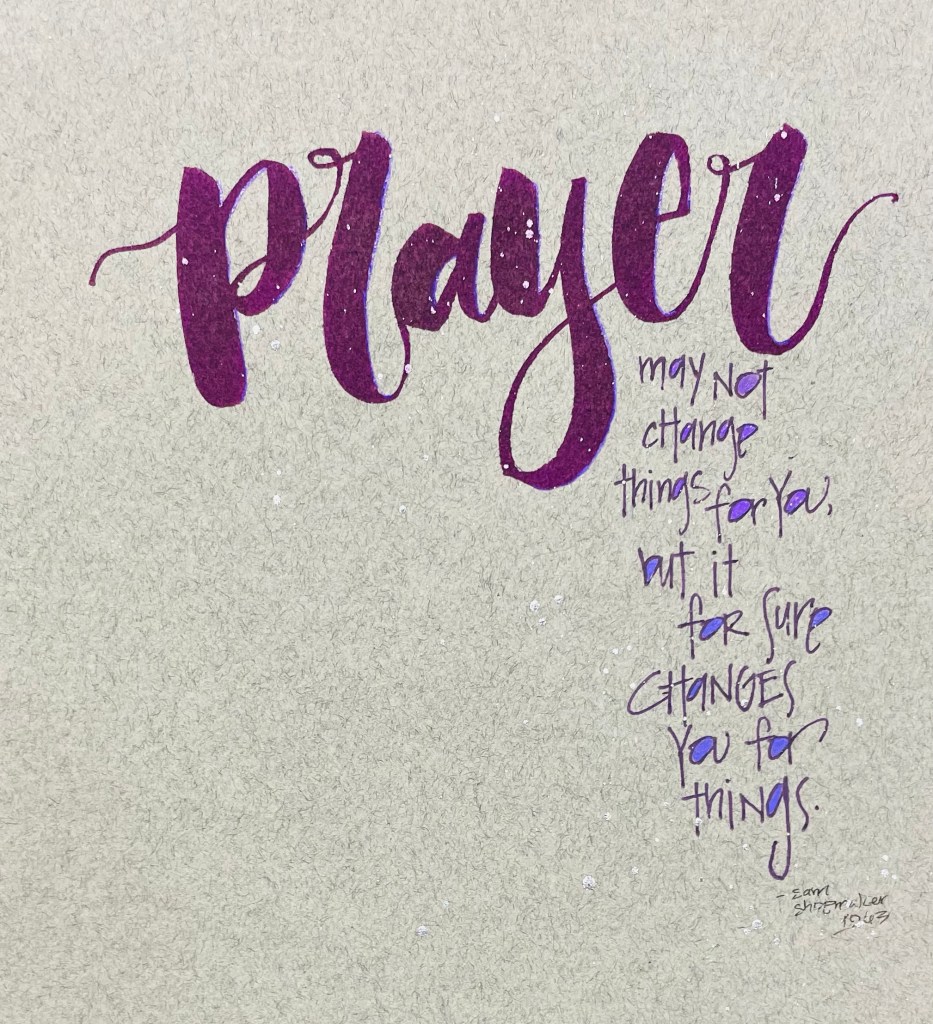 prayer
may Not
cHange
things for You,
but it
foR Sure
CHaNGES
You for
thiNgs.
- Sam
Shoemaker
1963